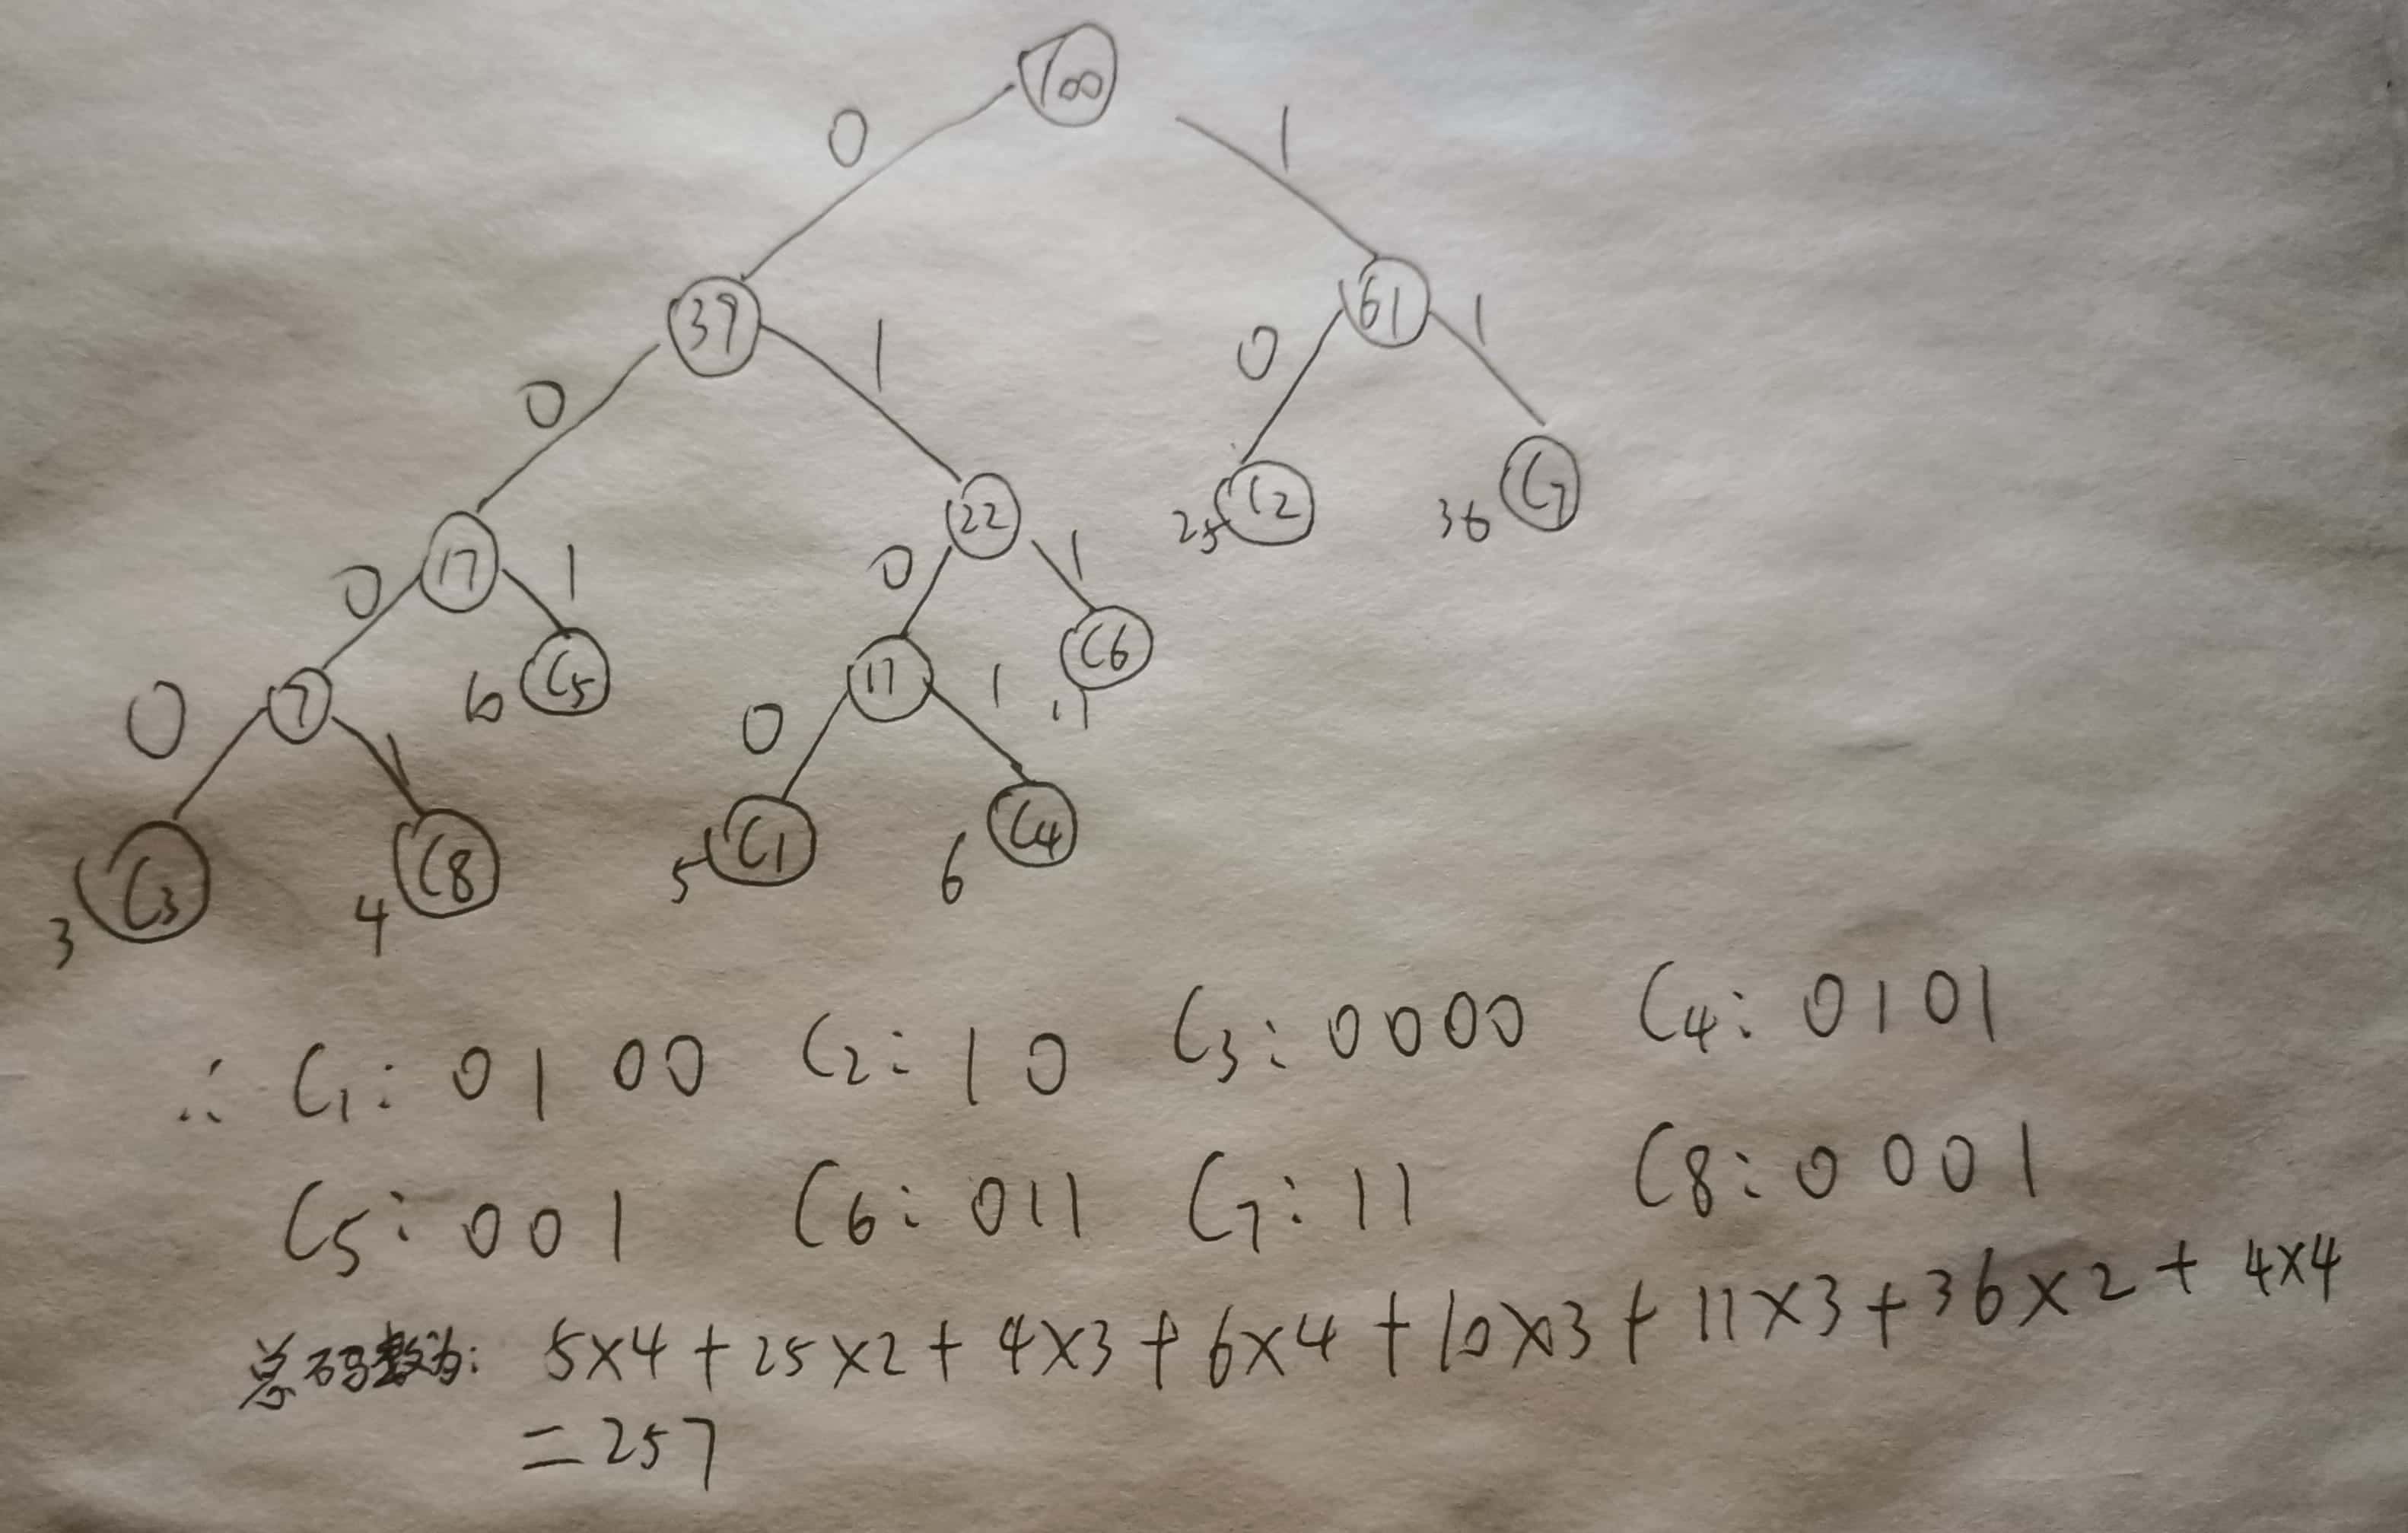 100
0 1
39 61
0 1 0 1
17 22 25 C2 36 C7
0 1 0 1
7 10 C5 11 C6 11
0 1 0 1
3 C3 4 C8 5 C1 6 C4
∴ C1: 0100 C2: 10 C3: 0000 C4: 0101
C5: 001 C6: 011 C7: 11 C8: 0001
总码数为: 5×4+25×2+4×3+6×4+10×3+11×3+36×2+4×4
=257